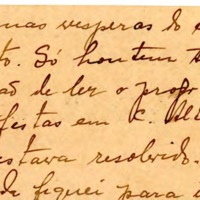 nas vesperas do
to. Só hontem
de ler o
festas em C.
estava resolvido.
fiquei para